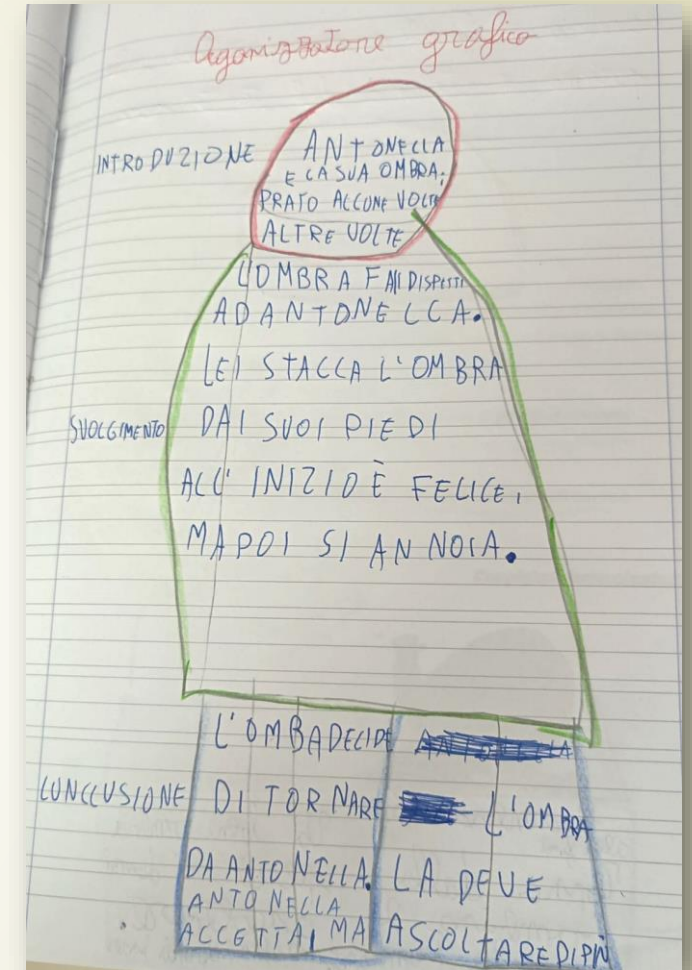 Organizzatore grafico
INTRODUZIONE
ANTONELLA
E LA SUA OMBRA;
PRATO ALCUNE VOLTE
ALTRE VOLTE
L'OMBRA FA I DISPETTI
AD ANTONELLA.
LEI STACCA L'OMBRA
SVOLGIMENTO
DAI SUOI PIEDI
ALL' INIZIO È FELICE,
MA POI SI ANNOIA.
CONCLUSIONE
L'OMBA DECIDE
DI TORNARE
DA ANTONELLA.
ANTONELLA
ACCETTA, MA
L'OMBRA
LA DEVE
ASCOLTARE DI PIÙ